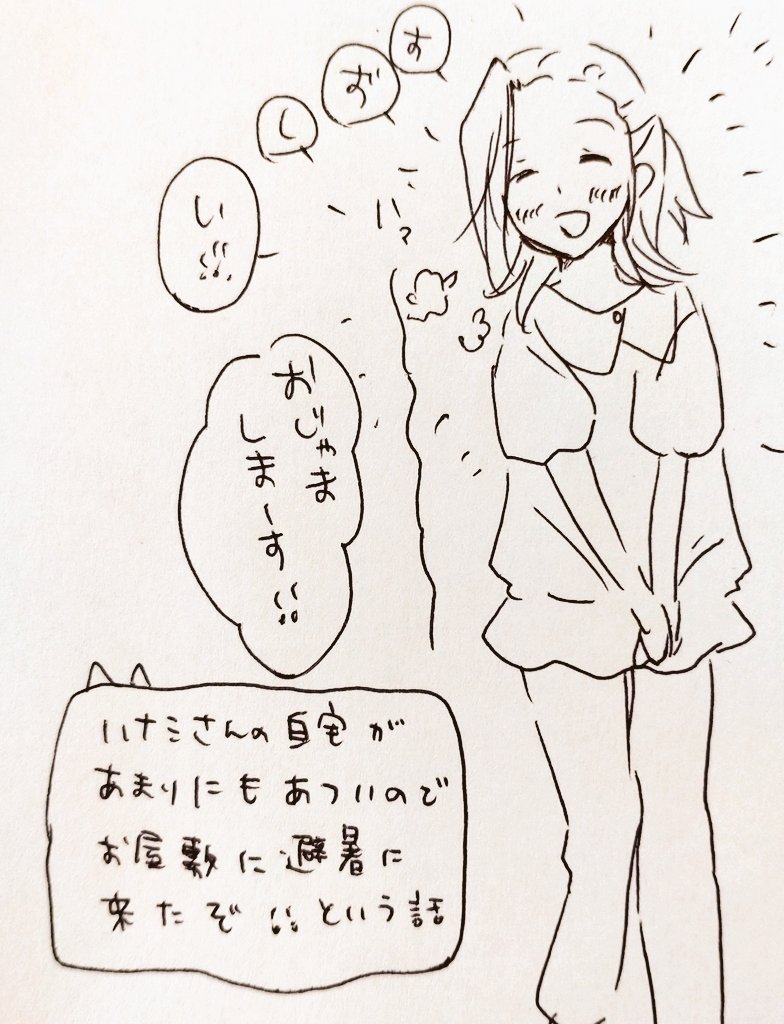 す
ず
し
い!!!
ハァ
おじゃま
しまーす!!
ハナミさんの自宅が
あまりにもあついので
お屋敷に避暑に
来たぞ!!という話